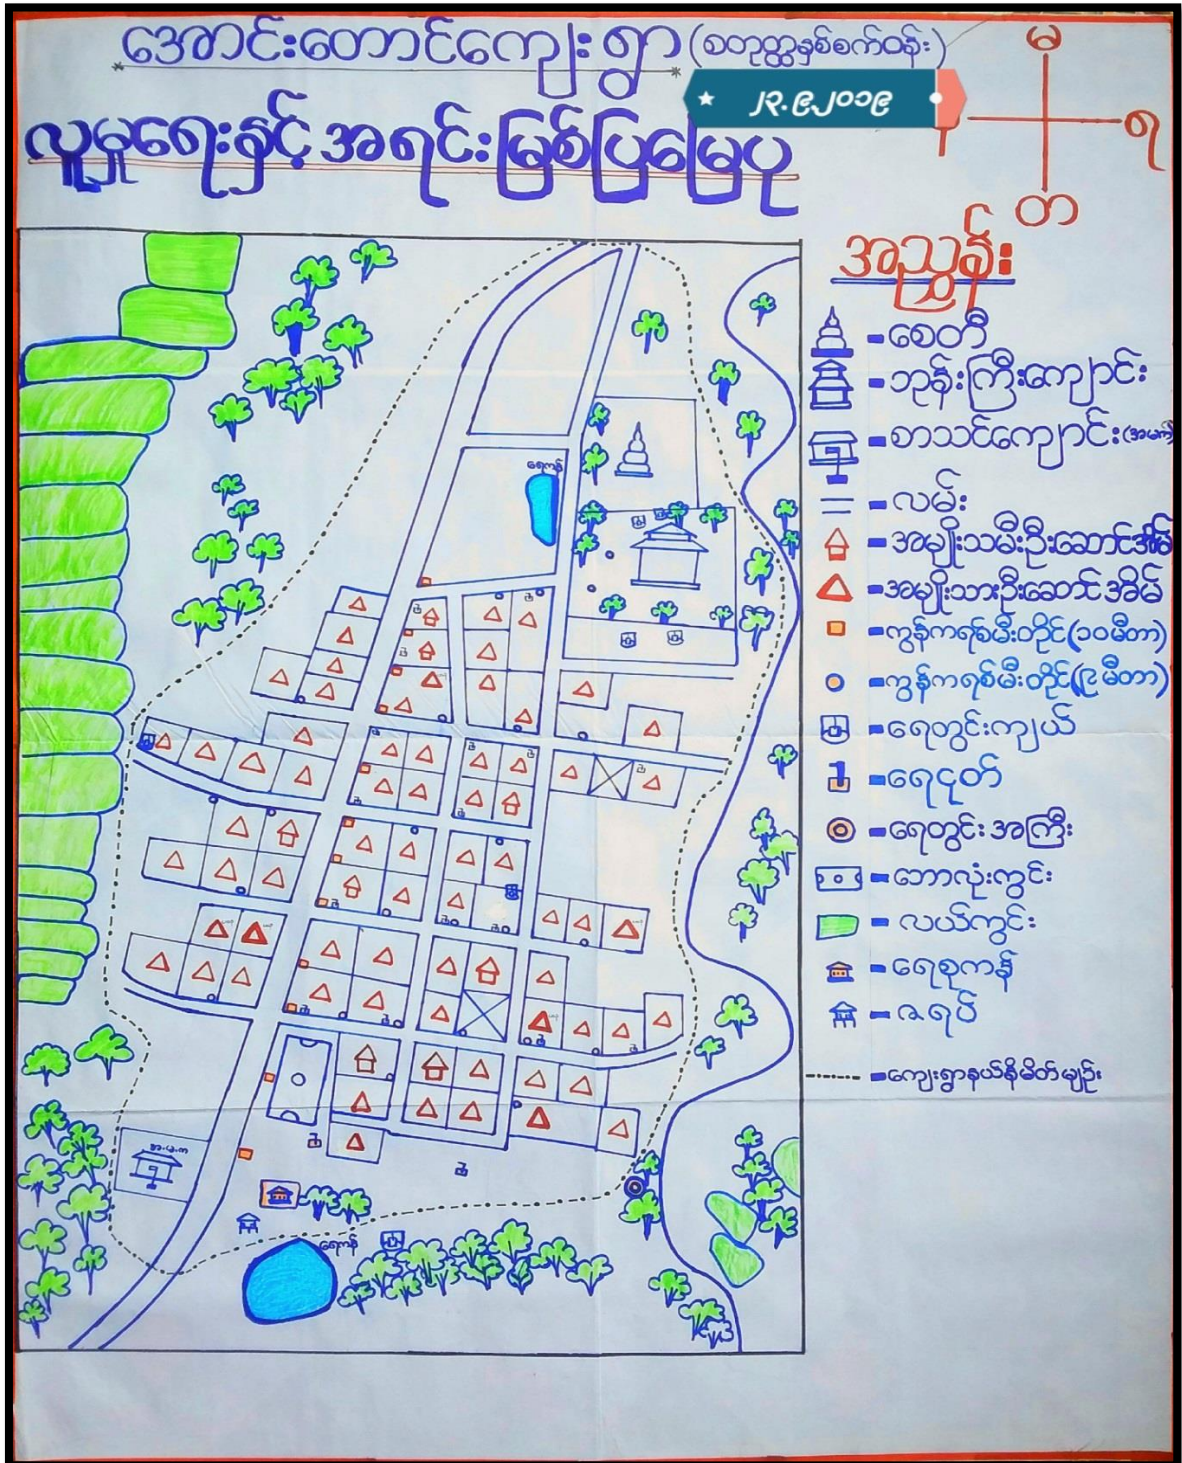 အောင်းတောင်ကျေးရွာ (စတုတ္ထနှစ်စက်ဝန်း)
၂၃.၉.၂၀၁၉
လူမှုရေးနှင့် အရင်းမြစ်ပြမြေပုံ
မ
ရ
တ
အညွှန်း
- စေတီ
- ဘုန်းကြီးကျောင်း
- စာသင်ကျောင်း (အမက)
- လမ်း
- အမျိုးသမီးဦးဆောင်အိမ်
- အမျိုးသားဦးဆောင်အိမ်
- ကွန်ကရစ်မီးတိုင် (၁၀မီတာ)
- ကွန်ကရစ်မီးတိုင် (၉မီတာ)
- ရေတွင်းကျယ်
- ရေငုတ်
- ရေတွင်းအကြီး
- ဘောလုံးကွင်း
- လယ်ကွင်း
- ရေစုကန်
- ဇရပ်
- ကျေးရွာနယ်နိမိတ်မျဉ်း
ရေကန်
အ.မ.က
ရေကန်